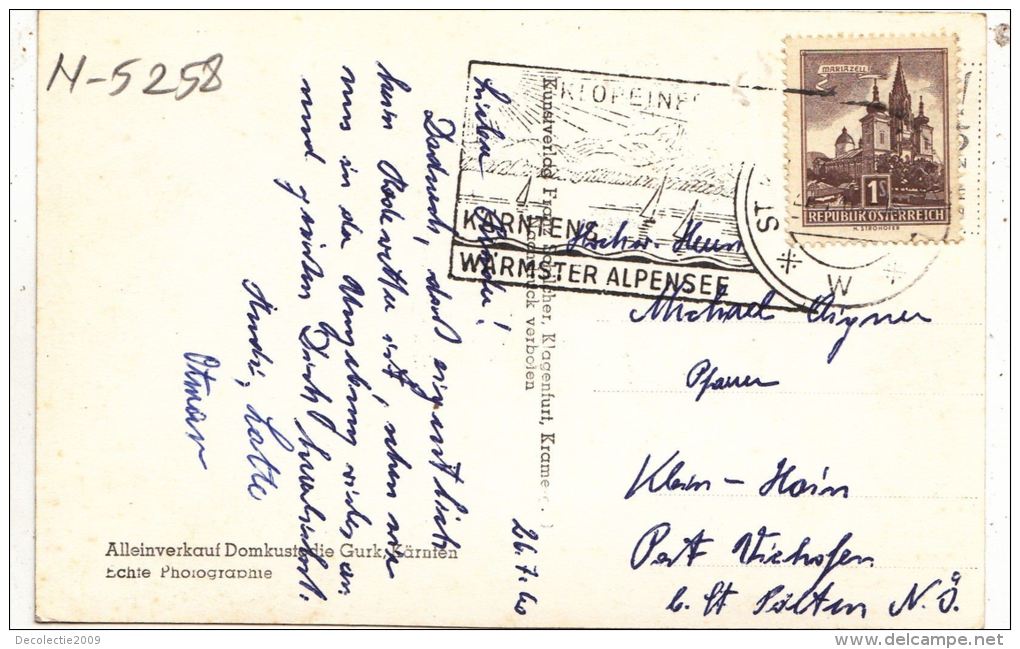 N-5258
KLOPEINER
KÄRNTENS
WÄRMSTER ALPENSEE
MARIAZELL
1S
REPUBLIK ÖSTERREICH
H. STROHOFER
ST
W
26.7.60
Lieber
Dadurch, daß eigentlich
kein Badewetter ist, sehen wir
uns in der Umgebung vieles an
und grüßen Dich herzlichst.
Lotte
Otmar
Kunstverlag Franz Schilcher, Klagenfurt, Kramer
Nachdruck verboten
Hochw. Herrn
Michael Aigner
Pfarrer
Klein-Hain
Post
b. St Pölten N.Ö.
Alleinverkauf Domkustodie Gurk, Kärnten
Echte Photographie
Decolectie2009
www.delcampe.net